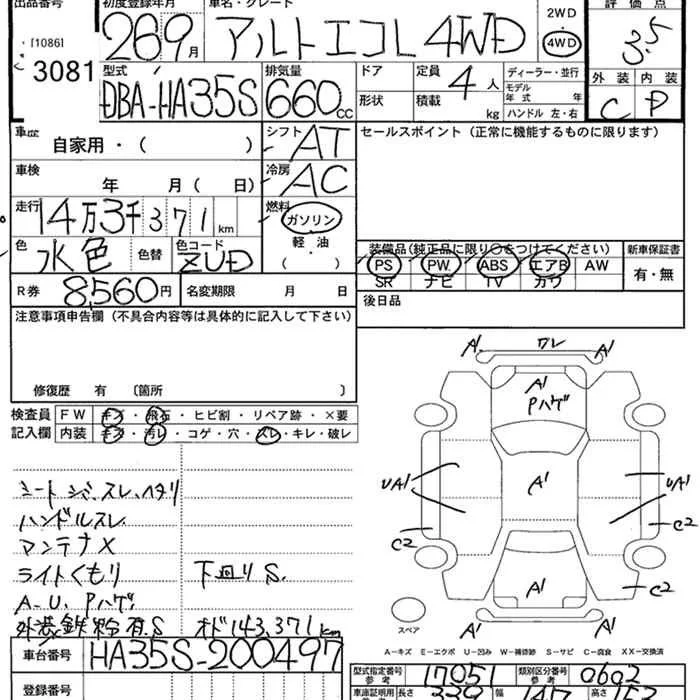 出品番号
[1086]
3081
初度登録年月
26 9月
車名・グレード
アルトエコL 4WD
2WD
・
4WD
評価点
3.5
外装 内装
C D
型式
DBA-HA35S
排気量
660 cc
ドア
形状
定員 4人
積載 kg
ディーラー・並行
モデル年式 年式
ハンドル 左・右
車歴
自家用・( )
シフト
AT
セールスポイント (正常に機能するものに限ります)
車検
年 月 (日)
冷房
AC
走行 14万3千371km
燃料
ガソリン
軽油
・( )
色 水色 色替
色コード
ZUD
装備品(純正品に限り○をつけてください)
新車保証書
PS PW ABS エアB AW
SR ナビ TV カワ
有・無
R券 8,560円
名変期限 月 日
後日品
注意事項申告欄 (不具合内容等は具体的に記入して下さい)
修復歴 有 〔箇所 〕
検査員 FW キズ・飛石・ヒビ割・リペア跡・×要
記入欄 内装 キズ・汚レ・コゲ・穴・スレ・キレ・破レ
シート シミ、スレ、ヘタリ
ハンドルスレ
マンテナX
ライトくもり 下回りS.
A-U、Pハゲ
外装鉄粉有.S オド143,371km
A1 ワレ A1
A1
Pハゲ
UA1 A1 UA1
C2 C2
A1 C2
A1 A1
スペア
A-キズ E-エクボ U-凹み W-補修跡 S-サビ C-腐食 XX-交換済
車台番号 HA35S-200497
登録番号
型式指定番号 参考 17051
類別区分番号 参考 0602
車庫証明用 長さ 339 幅 147 高さ